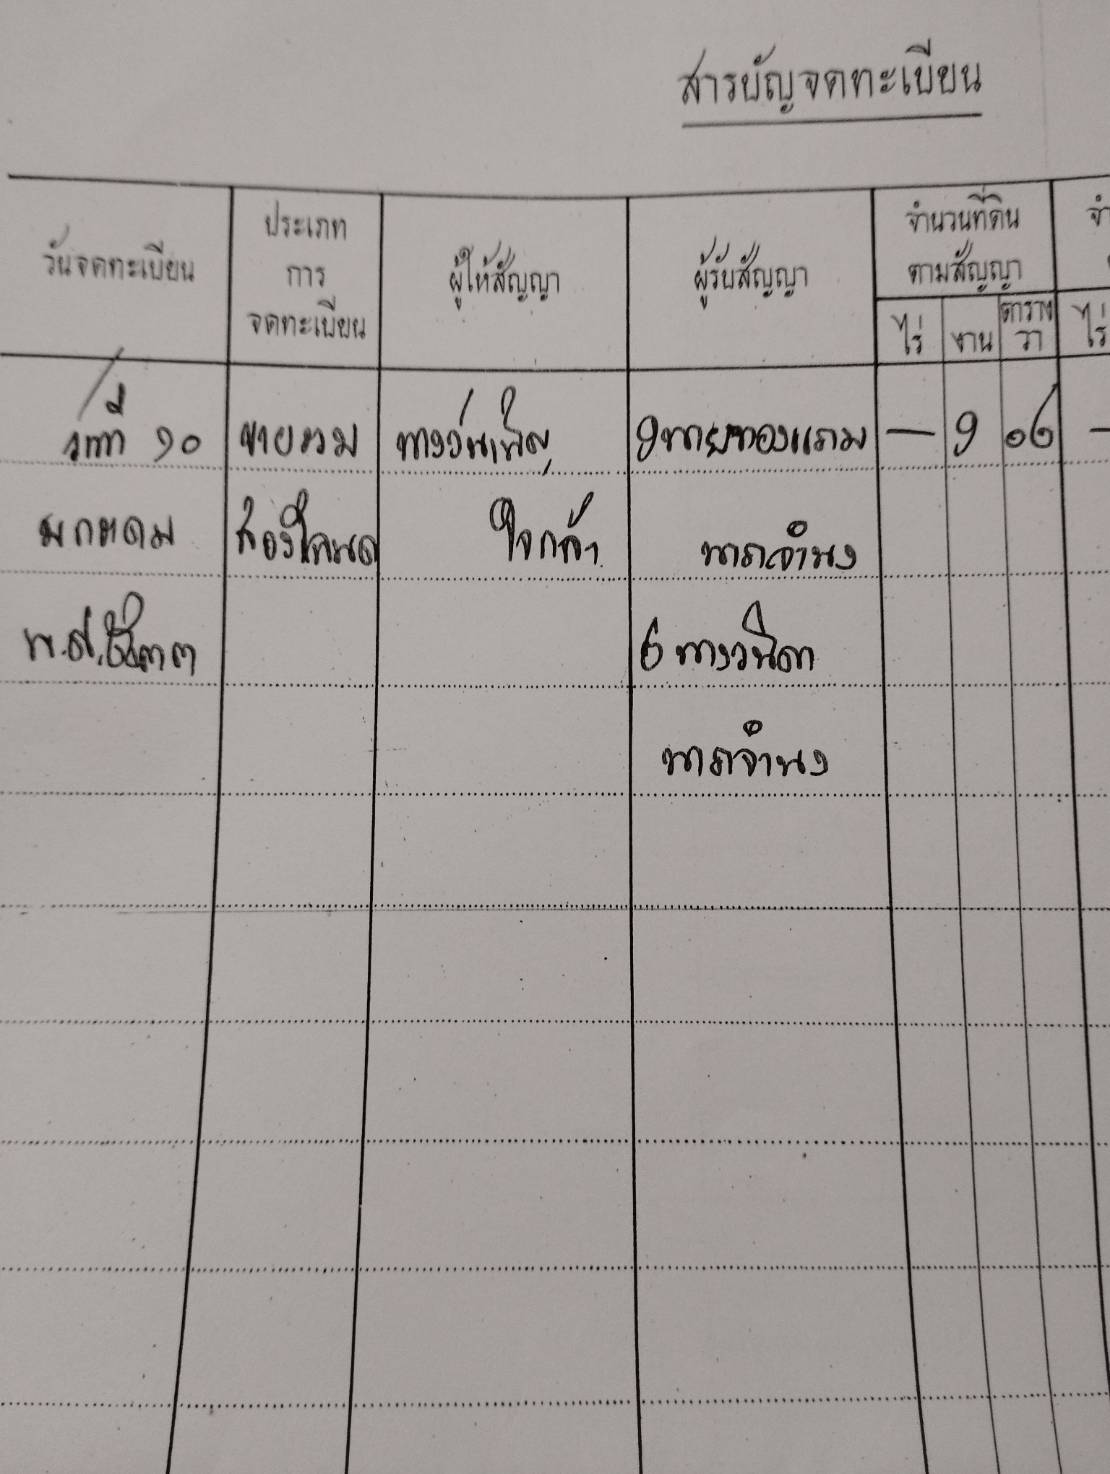 สารบัญจดทะเบียน
วันจดทะเบียน
ประเภท
การ
จดทะเบียน
ผู้ให้สัญญา
ผู้รับสัญญา
จำนวนที่ดิน
ตามสัญญา
ไร่
งาน
ตาราง
วา
ไร่
วันที่ ๑๐
ขายรวม
นางวันเพ็ญ
๑นายทองแถม
—
๑
๐๖
มกราคม
สองโฉนด
ใจกล้า
นาคจำนง
พ.ศ.
๒ นางวนิดา
นาคจำนง